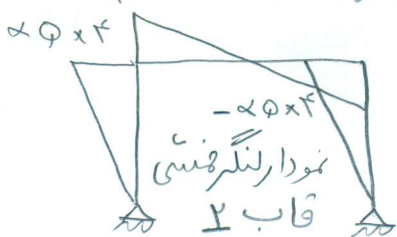 αQ×۴
-αQ×۴
نمودار لنگر خمشی
قاب ۲